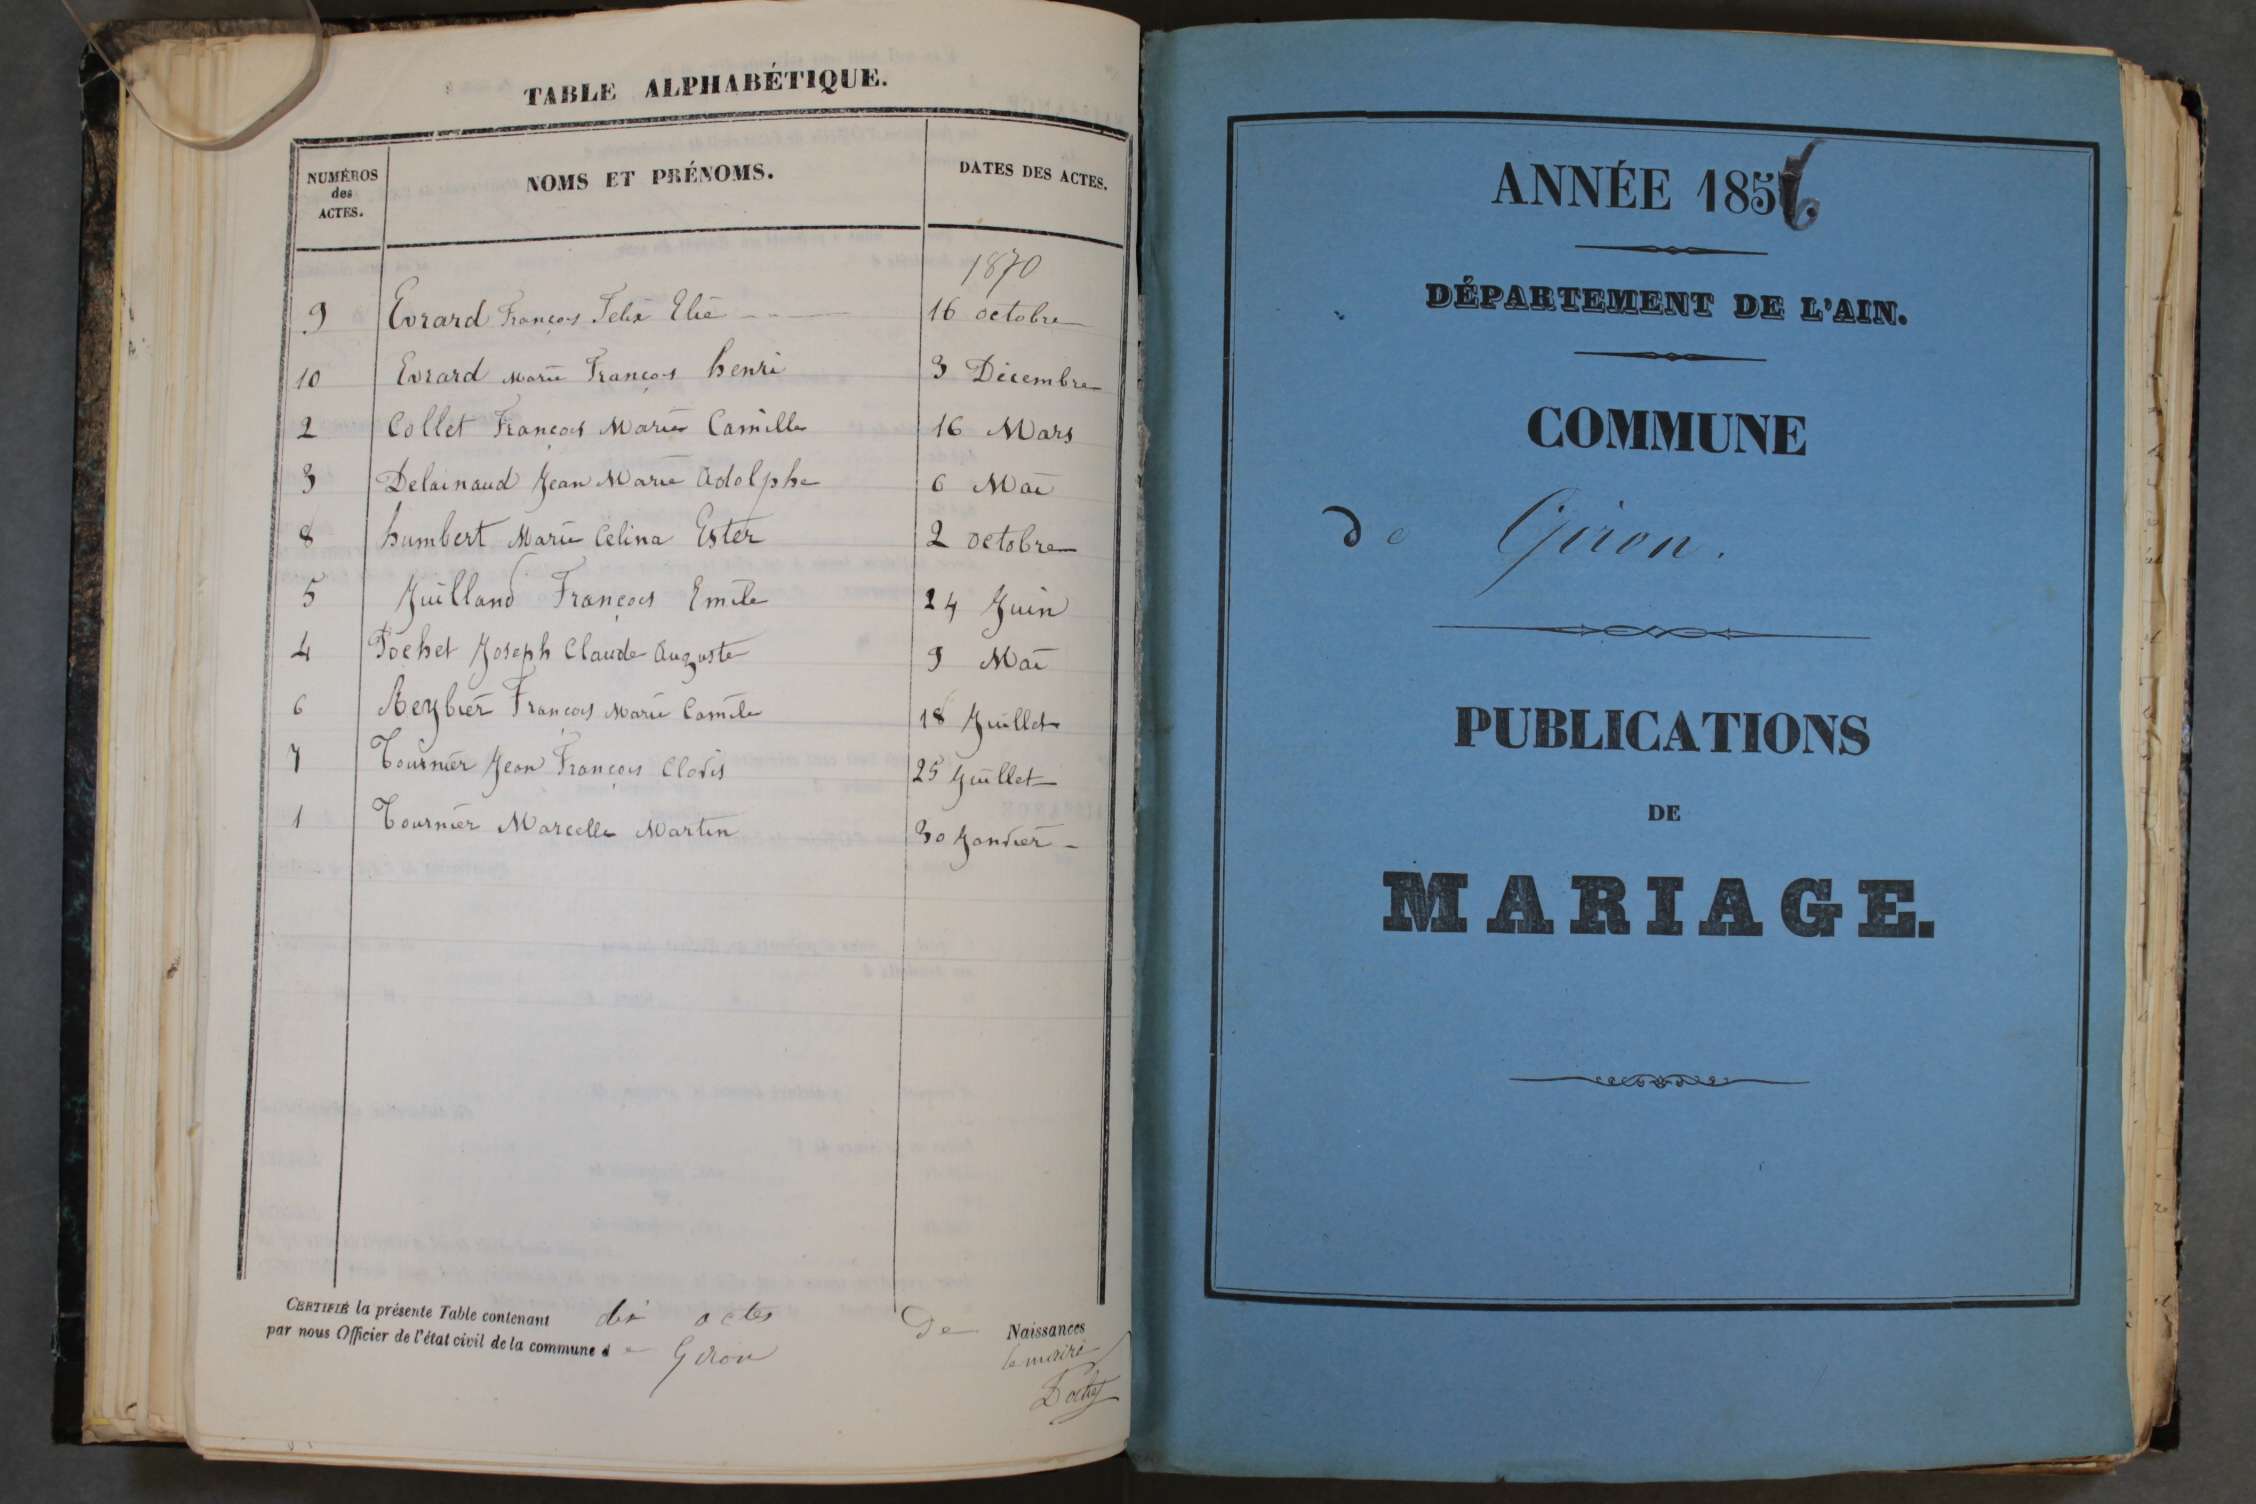 TABLE ALPHABÉTIQUE.
NUMÉROS des ACTES.
NOMS ET PRÉNOMS.
DATES DES ACTES.
1870
9 Evrard François Felix Elie 16 octobre
10 Evrard Marie François henri 3 Décembre
2 Collet François Marie Camille 16 Mars
3 Delainaud Jean Marie Adolphe 6 Mai
8 humbert Marie Celina Ester 2 octobre
5 Juilland François Emile 24 Juin
4 Pochet Joseph Claude Auguste 9 Mai
6 Reybier François Marie Camile 18 Juillet
7 Tournier Jean François Clovis 25 Juillet
1 Tournier Marcelle Martin 30 Janvier
CERTIFIÉ la présente Table contenant dix actes de Naissances
par nous Officier de l'état civil de la commune de Giron
le maire
Pochet
ANNÉE 1856
DÉPARTEMENT DE L'AIN.
COMMUNE
de Giron.
PUBLICATIONS
DE
MARIAGE.